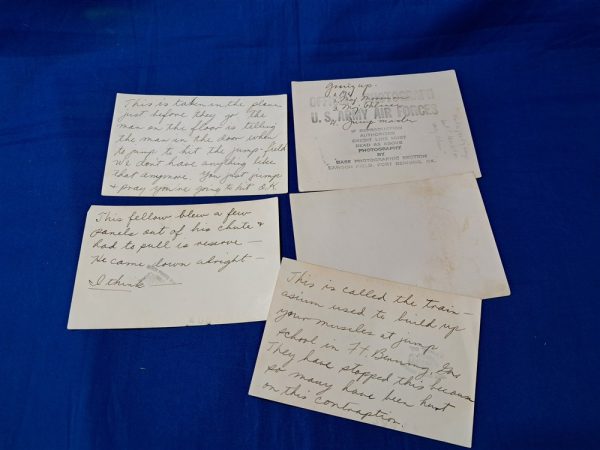 This is taken in the plane
just before they go the
man on the floor is telling
the man in the door when
to jump to hit the jump-field
We dont have anything like
that anymore. You just jump
+ pray you're going to hit O.K.
Going up.
OFFICIAL PHOTOGRAPH
U. S. ARMY AIR FORCES
Jump master
IF REPRODUCTION
AUTHORIZED
CREDIT LINE MUST
READ AS ABOVE
PHOTOGRAPHY
BY
BASE PHOTOGRAPHIC SECTION
LAWSON FIELD, FORT BENNING, GA.
This fellow blew a few
panels out of his chute +
had to pull is reserve —
He came down alright —
I think —
This is called the train-
asium used to build up
your muscles at jump
school in Ft. Benning, Ga.
They have stopped this because
so many have been hurt
on this contraption.